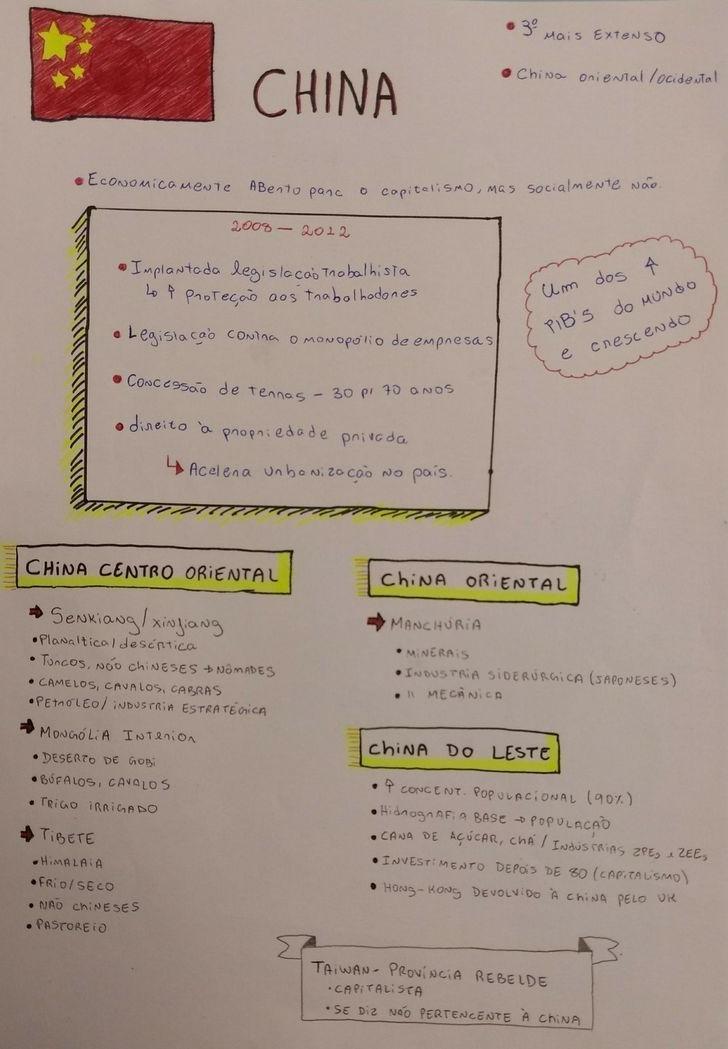 CHINA
• 3º MAIS EXTENSO
• China oriental/ocidental
• ECONOMICAMENTE ABERTO para o capitalismo, mas socialmente não.
2008 — 2012
• Implantada legislação trabalhista
↳ ↑ proteção aos trabalhadores
• Legislação contra o monopólio de empresas
• Concessão de terras – 30 p/ 70 anos
• direito à propriedade privada
↳ Acelera urbanização no país.
Um dos ↑
PIB'S do MUNDO
e crescendo
CHINA CENTRO ORIENTAL
➡ SENKIANG/XINJIANG
• Planáltica/desértica
• Turcos, não chineses → nômades
• CAMELOS, CAVALOS, CABRAS
• PETRÓLEO/ INDUSTRIA ESTRATÉGICA
➡ MONGÓLIA INTERIOR
• DESERTO DE GOBI
• BÚFALOS, CAVALOS
• TRIGO IRRIGADO
➡ TIBETE
• HIMALAIA
• FRIO/SECO
• NÃO CHINESES
• PASTOREIO
CHINA ORIENTAL
➡ MANCHÚRIA
• MINERAIS
• INDUSTRIA SIDERÚRGICA (JAPONESES)
• " MECÂNICA
CHINA DO LESTE
• ↑ CONCENT. POPULACIONAL (90%)
• Hidrografia BASE → POPULAÇÃO
• CANA DE AÇÚCAR, CHÁ / INDÚSTRIAS ZPEs e ZEEs
• INVESTIMENTO DEPOIS DE 80 (CAPITALISMO)
• HONG-KONG DEVOLVIDO À CHINA PELO UK
TAIWAN - PROVÍNCIA REBELDE
• CAPITALISTA
• SE DIZ NÃO PERTENCENTE À CHINA